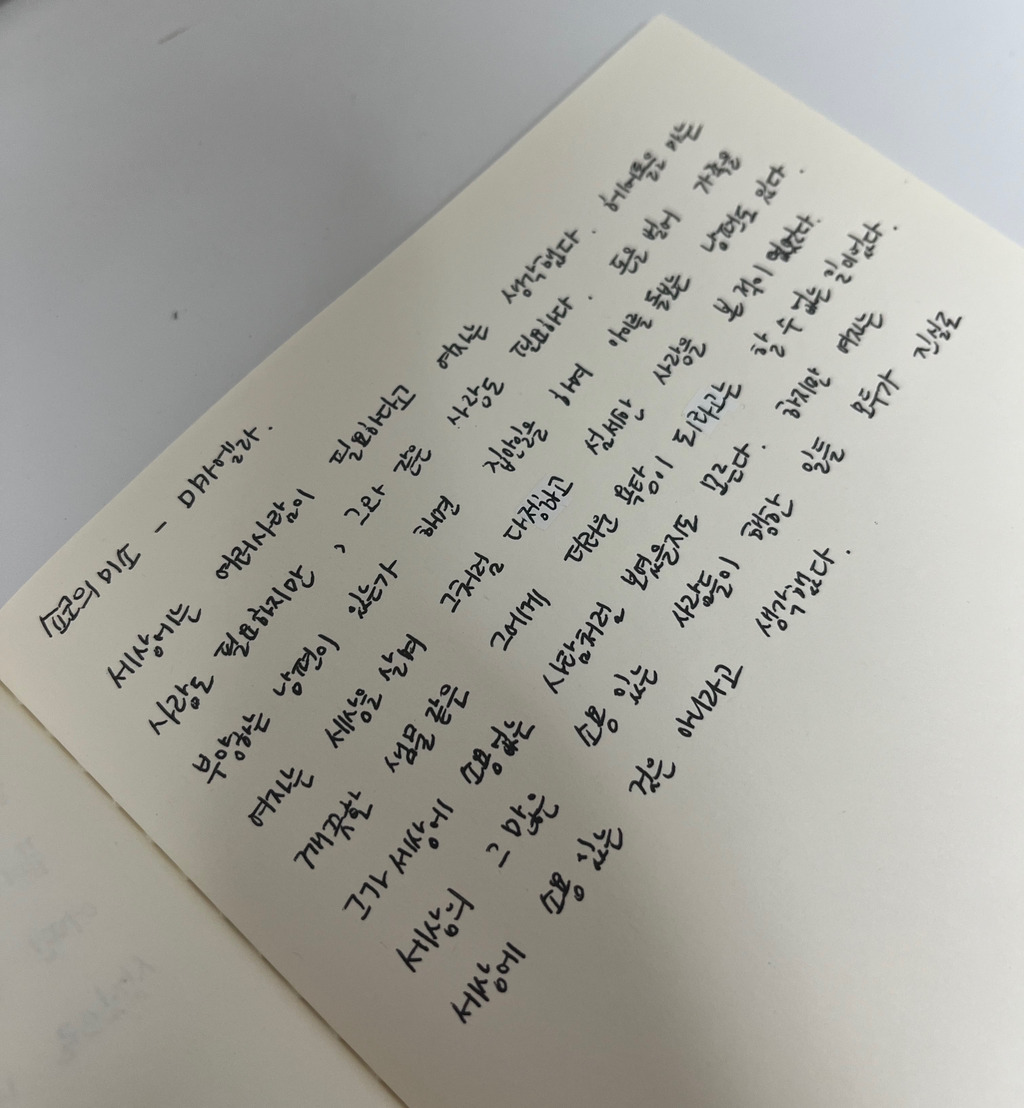 쇼코의 미소 - 미카엘라.
세상에는 여러사람이 필요하다고 여자는 생각했다. 헤어롤을 마는
사람도 필요하지만, 그와 같은 사람도 필요하다. 돈을 벌어 가족을
부양하는 남편이 있는가 하면 집안일을 하며 아이를 돌보는 남편도 있다.
여자는 세상을 살며 그처럼 다정하고 섬세한 사람을 본 적이 없었다.
깨끗한 샘물 같은 그에게 더러운 욕탕이 되라고는 할 수 없는 일이었다.
그가 세상에 소용없는 사람처럼 보였을지도 모른다. 하지만 여자는
세상의 그 많은 소용 있는 사람들이 행한 일들 모두가 진실로
세상에 소용 있는 것은 아니라고 생각했다.